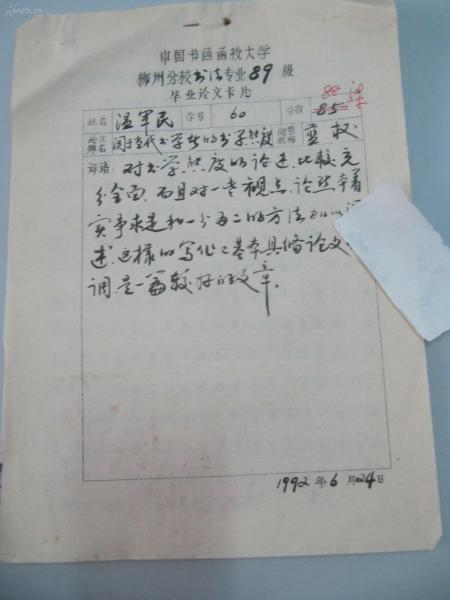 中国书画函授大学
柳州分校书法专业89级
毕业论文卡片
姓名 温军民 学号 60 分数 85 88
论文题名 关于当代书学者的书学态度 教师 蓝权
评语: 对书学态度的论述, 比较充
分全面, 而且对一些视点, 论然本着
实事求是和一分为二的方法
述, 这样的写作, 基本具备论文
调, 是一篇较好的文章。
1992年6月24日